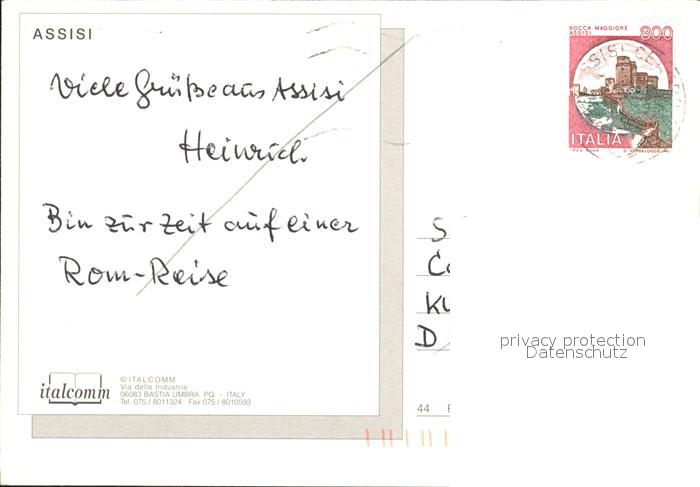 ASSISI
Viele Grüße aus Assisi
Heinrich
Bin zur Zeit auf einer
Rom-Reise
italcomm
© ITALCOMM
Via delle Industrie
06083 BASTIA UMBRA PG. - ITALY
Tel. 075 / 8011324 Fax 075 / 8010593
ROCCA MAGGIORE
ASSISI
800
ITALIA
S
Co
KU
D
44
privacy protection
Datenschutz